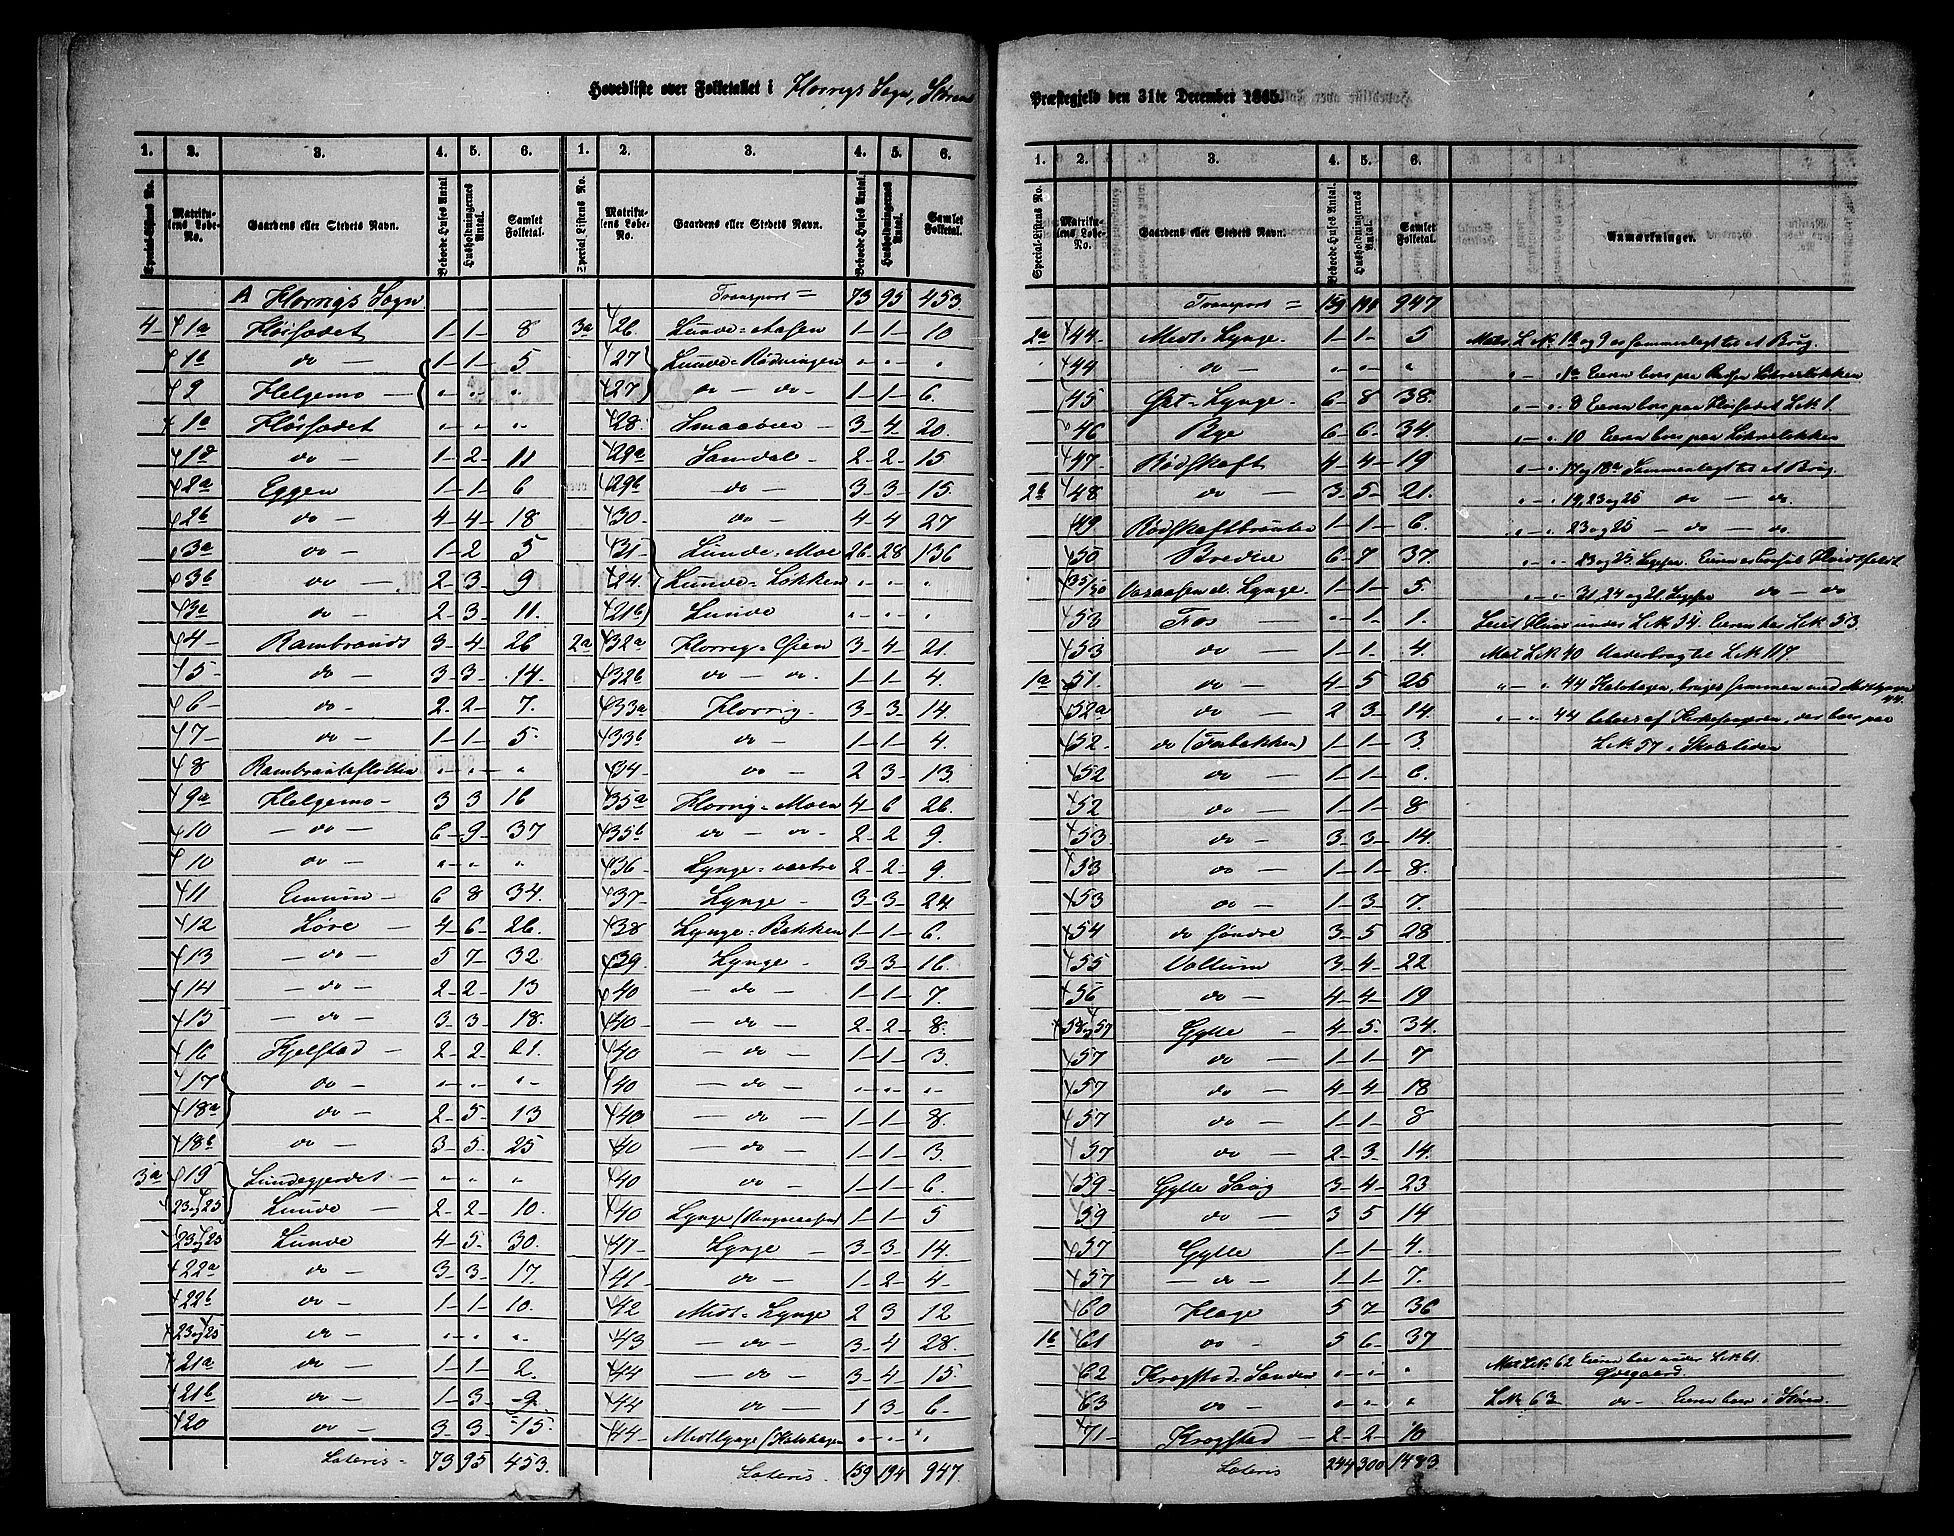 Hovedliste over Folketallet i Horrigs Sogn, Støren
Præstegjeld den 31te December 1865.
1. 2. 3. 4. 5. 6. 1. 2. 3. 4. 5. 6.
Special-Listens No. Matrikulens Løbe-No. Gaardens eller Stedets Navn. Beboede Huses Antal. Husholdningernes Antal. Samlet Folketal. Special-Listens No. Matrikulens Løbe-No. Gaardens eller Stedets Navn. Beboede Huses Antal. Husholdningernes Antal. Samlet Folketal.
A Horrigs Sogn
4 1a Hørsødet 1 1 8
1b do 1 1 5
9 Helgemo " " "
1a Hørsødet " " "
1d do 1 2 11
2a Eggen 1 1 6
2b do 4 4 18
3a do 1 2 5
3b do 2 3 9
3a do 2 3 11
4 Rambraads 3 4 26
5 do 3 3 14
6 do 2 2 7
7 do 1 1 5
8 " " "
9a Helgemo 3 3 16
10 do 6 9 37
10 do " " "
11 6 8 34
12 Løre 4 6 26
13 do 5 7 32
14 do 2 2 13
15 do 3 3 18
16 Kjelstad 2 2 21
17 do " " "
18a do 2 5 13
18b do 3 5 25
3a 19 Lundegjerdet " " "
23 og 25 Lunde 2 2 10
23 og 25 Lunde 4 5 30
22a do 3 3 17
22b do 1 1 10
23 og 25 do " " "
21a do 1 1 2
21b do 1 3 9
20 do 3 3 15
Lateris 73 95 453
Transport = 73 95 453
3a 26 Lunde-Aasen 1 1 10
27 Lunde-Rødningen " " "
27 do - do 1 1 6
28 3 4 20
29a Samdal 2 2 15
29b do 3 3 15
30 do 4 4 27
31 Lunde-Moe 26 28 136
24 Lunde-Løkken " " "
21b Lunde " " "
2a 32a Horrig-Øien 3 4 21
32b do - do 1 1 4
33a Horrig 3 3 14
33b do 1 1 4
34 do 2 3 13
35a Horrig-Moen 4 6 26
35b do - do 2 2 9
36 Lynge-vestre 2 2 9
37 Lynge 3 3 24
38 Lynge-Bakken 1 1 6
39 Lynge 3 3 16
40 do 1 1 7
40 do 2 2 8
40 do 1 1 3
40 do " " "
40 do 1 1 8
40 do 1 1 3
40 do 1 1 6
40 Lynge (Ringaasen) 1 1 5
41 Lynge 3 3 14
41 do 1 2 4
42 Midt-Lynge 2 3 12
43 do 3 4 28
44 do 3 4 15
44 do 1 3 6
44 Midtlynge (Halshagen " " "
Lateris 159 194 947
1. 2. 3. 4. 5. 6.
Special-Listens No. Matrikulens Løbe-No. Gaardens eller Stedets Navn. Beboede Huses Antal. Husholdningernes Antal. Samlet Folketal. Anmærkninger.
Transport = 159 194 947
2a 44 Midt-Lynge 1 1 5
44 do " " "
45 Øst-Lynge 6 8 38
46 Bye 6 6 34
47 Rødskaft 4 4 19
2b 48 do 3 5 21
49 Rødskaftbraaten 1 1 6
50 Bredlie 6 7 37
35/50 Varaasen d. Lynge 1 1 5
53 Fos " 1 1
53 do 1 1 4
1a 51 do 4 5 25
52a do 2 3 14
52 do (Fosbakken) 1 1 3
52 do 1 1 6
52 do 1 1 8
53 do 3 3 14
53 do 1 1 8
53 do 1 3 7
54 do søndre 3 5 28
55 Vollum 3 4 22
56 do 4 4 19
58 og 57 Gylle 4 5 34
57 do 1 1 7
57 do 4 4 18
57 do 1 1 8
57 do 2 3 14
59 Gylle Saug 3 4 23
59 do 3 5 14
57 Gylle 1 1 4
57 do 1 1 7
60 Hage 5 7 36
1b 61 do 5 6 37
62 Krogstad-Sanden " " "
63 do " " "
71 Krogstad 2 2 10
Lateris 244 300 1483
Mat. L.N. 1a og 9 er sammenlagt til et Brug.
" - " 1a Eieren boer paa
" - " 8 Eieren boer paa Hørsødet L.N. 1.
" - " 10 Eieren boer paa
" - " 17 og 18a Sammenlagt til et Brug.
" - " 19, 23 og 25 do - do.
" - " 23 og 25 - do - do
" - " 23 og 25. Eieren er bosat
" - " 31, 24 og 21 do - do
under L.N. 54. Eieren har L.N. 53.
Mat L.N. 40 Underbrug til L.N. 117.
" - " 44 Halshagen, bruges sammen med Midtlynge 44.
" - " 44 beboes af Kirkesangeren, der boer paa
L.N. 57 i
Mat L.N. 62 Eieren boer under L.N. 61.
Øvegaard.
L.N. 63 do - Eieren boer i Støren.